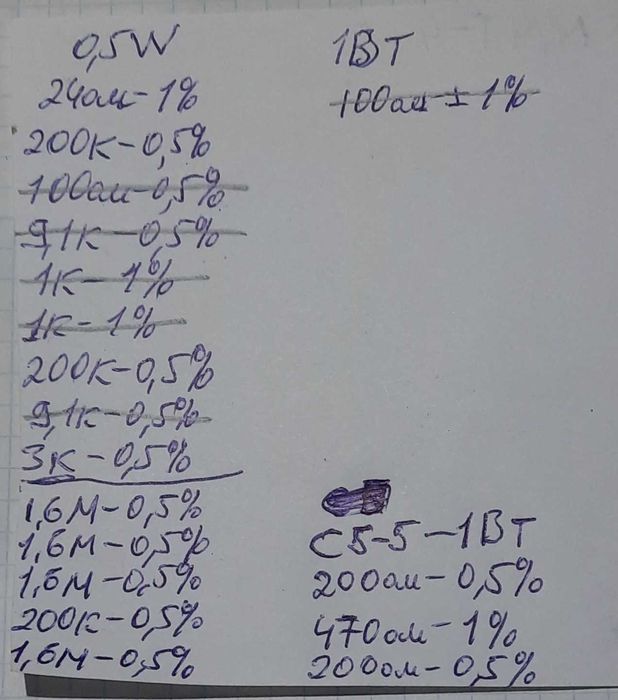 0,5W
24ом-1%
200к-0,5%
100ом-0,5%
9,1к-0,5%
1к-1%
1к-1%
200к-0,5%
9,1к-0,5%
3к-0,5%
1,6м-0,5%
1,6м-0,5%
1,6м-0,5%
200к-0,5%
1,6м-0,5%
1Вт
100ом ± 1%
С5-5-1Вт
200ом-0,5%
470ом-1%
200ом-0,5%